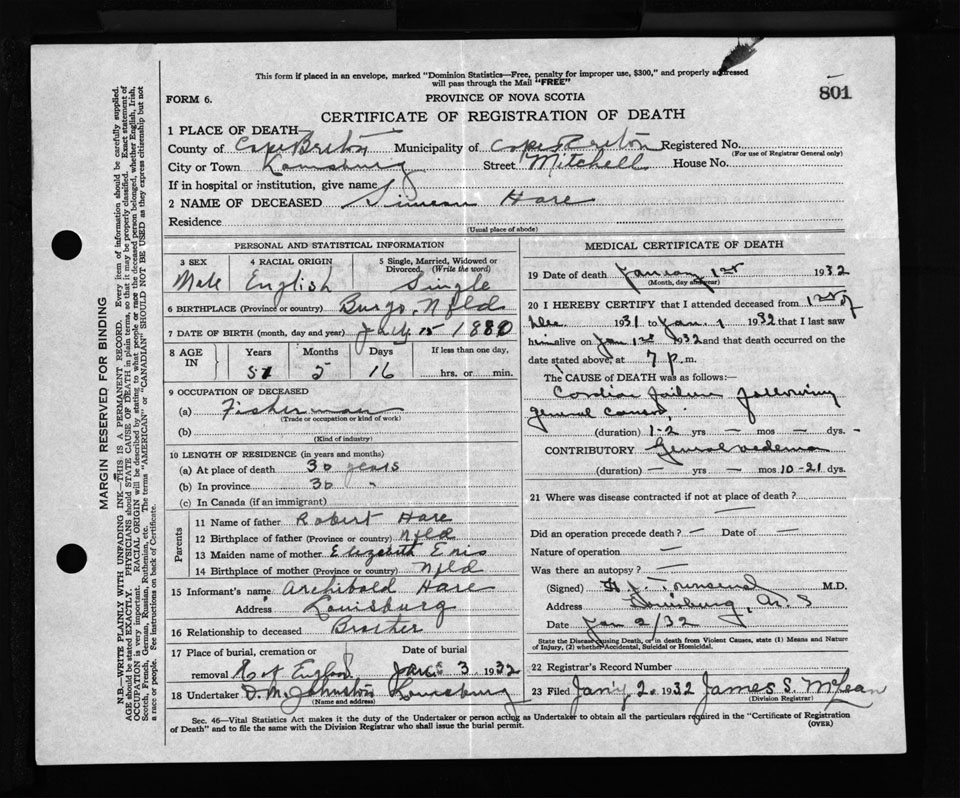 This form if placed in an envelope, marked "Dominion Statistics—Free, penalty for improper use, $300," and properly addressed
will pass through the Mail "FREE"
801
FORM 6.
PROVINCE OF NOVA SCOTIA
CERTIFICATE OF REGISTRATION OF DEATH
1 PLACE OF DEATH
County of Cape Breton Municipality of Cape Breton Registered No.
(For use of Registrar General only)
City or Town Louisburg Street Mitchell House No.
If in hospital or institution, give name
2 NAME OF DECEASED Simeon Hare
Residence
(Usual place of abode)
PERSONAL AND STATISTICAL INFORMATION
3 SEX 4 RACIAL ORIGIN 5 Single, Married, Widowed or
Divorced. (Write the word)
Male English Single
6 BIRTHPLACE (Province or country) Burgo, Nfld
7 DATE OF BIRTH (month, day and year) July 15 1880
8 AGE IN Years Months Days If less than one day,
51 5 16 hrs. or min.
9 OCCUPATION OF DECEASED
(a) Fisherman
(Trade or occupation or kind of work)
(b)
(Kind of industry)
10 LENGTH OF RESIDENCE (in years and months)
(a) At place of death 30 years
(b) In province 30 "
(c) In Canada (if an immigrant)
Parents
11 Name of father Robert Hare
12 Birthplace of father (Province or country) Nfld
13 Maiden name of mother Elizabeth Enis
14 Birthplace of mother (Province or country) Nfld
15 Informant's name Archibald Hare
Address Louisburg
16 Relationship to deceased Brother
17 Place of burial, cremation or Date of burial
removal C of England Jan 3 1932
18 Undertaker D. M. Johnston Louisburg
(Name and address)
MEDICAL CERTIFICATE OF DEATH
19 Date of death January 1st 1932
(Month, day and year)
20 I HEREBY CERTIFY that I attended deceased from 1st of
Dec. 1931 to Jan. 1 1932 that I last saw
him alive on Jan 1st 1932 and that death occurred on the
date stated above, at 7 p.m.
The CAUSE OF DEATH was as follows:—
Cardiac failure following
general
(duration) 1-2 yrs – mos – dys. -
CONTRIBUTORY General oedema
(duration) – yrs – mos 10-21 dys.
21 Where was disease contracted if not at place of death?
—
Did an operation precede death? – Date of —
Nature of operation —
Was there an autopsy? –
(Signed) Townsend M.D.
Address Louisburg, N.S
Date Jan 2/32
State the Disease causing Death, or in death from Violent Causes, state (1) Means and Nature
of Injury, (2) whether Accidental, Suicidal or Homicidal.
22 Registrar's Record Number
23 Filed Jan'y 2. 1932 James S. McLean
(Division Registrar)
Sec. 46—Vital Statistics Act makes it the duty of the Undertaker or person acting as Undertaker to obtain all the particulars required in the "Certificate of Registration
of Death" and to file the same with the Division Registrar who shall issue the burial permit.
(OVER)
MARGIN RESERVED FOR BINDING
N.B.—WRITE PLAINLY WITH UNFADING INK—THIS IS A PERMANENT RECORD. Every item of information should be carefully supplied.
AGE should be stated EXACTLY. PHYSICIANS should STATE CAUSE OF DEATH in plain terms, so that it may be properly classified. Exact statement of
OCCUPATION is very important. RACIAL ORIGIN will be described by stating to what people or race the deceased person belonged, whether English, Irish,
Scotch, French, German, Russian, Ruthenian, etc. The terms "AMERICAN" or "CANADIAN" SHOULD NOT BE USED as they express citizenship but not
a race or people. See instructions on back of Certificate.